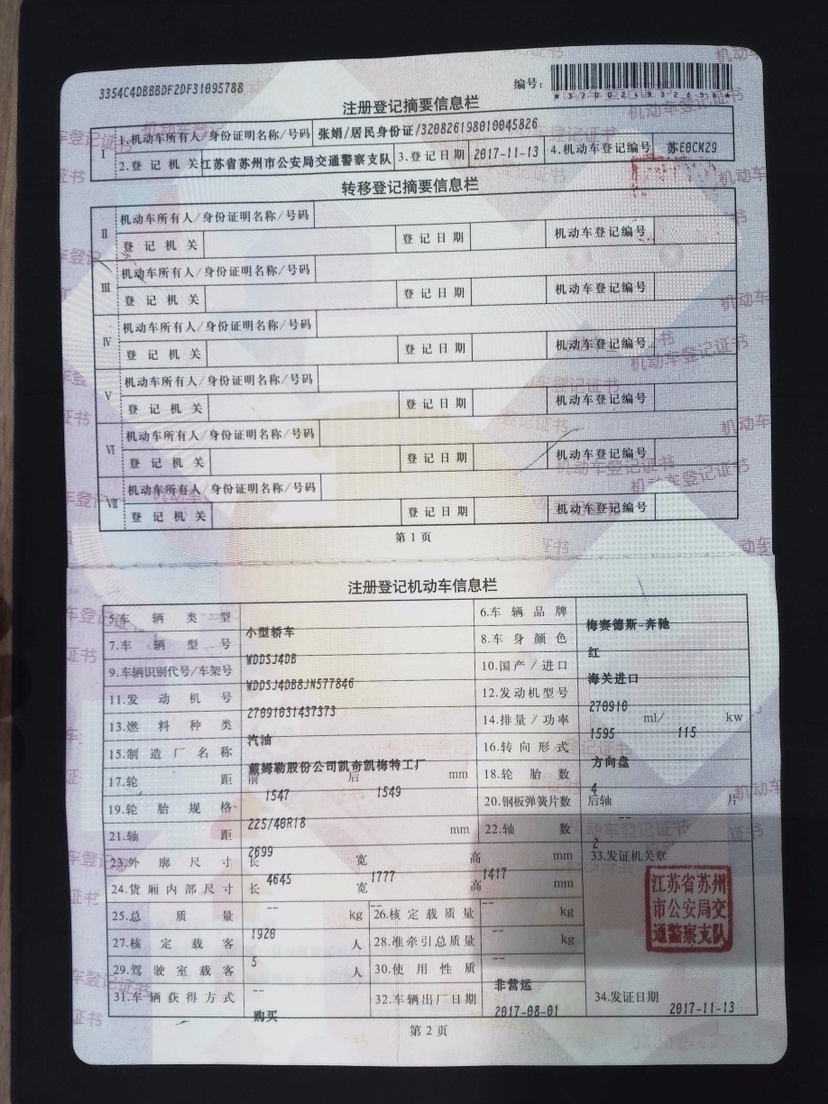 3354C4DBBBDF2DF31095788
编号:
*320024932656*
注册登记摘要信息栏
I 1.机动车所有人/身份证明名称/号码 张娟/居民身份证/320826198010045826
2.登记机关 江苏省苏州市公安局交通警察支队 3.登记日期 2017-11-13 4.机动车登记编号 苏E0CM29
转移登记摘要信息栏
II 机动车所有人/身份证明名称/号码
登记机关 登记日期 机动车登记编号
III 机动车所有人/身份证明名称/号码
登记机关 登记日期 机动车登记编号
IV 机动车所有人/身份证明名称/号码
登记机关 登记日期 机动车登记编号
V 机动车所有人/身份证明名称/号码
登记机关 登记日期 机动车登记编号
VI 机动车所有人/身份证明名称/号码
登记机关 登记日期 机动车登记编号
VII 机动车所有人/身份证明名称/号码
登记机关 登记日期 机动车登记编号
第1页
注册登记机动车信息栏
5.车辆类型 小型轿车 6.车辆品牌 梅赛德斯-奔驰
7.车辆型号 WDDSJ4DB 8.车身颜色 红
9.车辆识别代号/车架号 WDDSJ4DB8JN577846 10.国产/进口 海关进口
11.发动机号 27091031437373 12.发动机型号 270910
13.燃料种类 汽油 14.排量/功率 1595 ml/ 115 kw
15.制造厂名称 戴姆勒股份公司凯奇凯梅特工厂 16.转向形式 方向盘
17.轮距 前 1547 后 1549 mm 18.轮胎数 4
19.轮胎规格 225/40R18 20.钢板弹簧片数 后轴 -- 片
21.轴距 2699 mm 22.轴数 2
23.外廓尺寸 长 4645 宽 1777 高 1417 mm 33.发证机关章
24.货厢内部尺寸 长 -- 宽 -- 高 -- mm
25.总质量 1920 kg 26.核定载质量 -- kg
27.核定载客 5 人 28.准牵引总质量 -- kg
29.驾驶室载客 -- 人 30.使用性质 非营运
31.车辆获得方式 购买 32.车辆出厂日期 2017-08-01 34.发证日期 2017-11-13
江苏省苏州
市公安局交
通警察支队
第2页